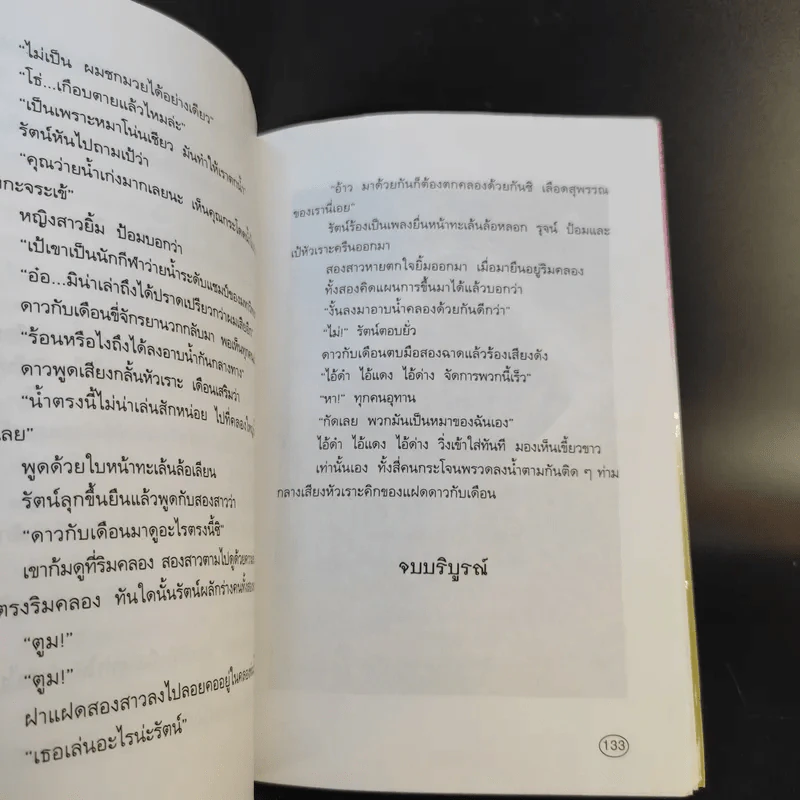 “ไม่เป็น ผมชกมวยได้อย่างเดียว”
“โธ่...เกือบตายแล้วไหมล่ะ”
“เป็นเพราะหมาโน่นเชียว มันทำให้เราตกน้ำ”
รัตน์หันไปถามเป้ว่า
“คุณว่ายน้ำเก่งมากเลยนะ เห็นคุณกระโดด
กะจระเข้”
หญิงสาวยิ้ม ป้อมบอกว่า
“เป้เขาเป็นนักกีฬาว่ายน้ำระดับแชมป์ของ
“อ๋อ...มิน่าเล่าถึงได้ปราดเปรียวกว่าผมเสียอีก”
ดาวกับเดือนขี่จักรยานวกกลับมา พอเห็นทุกคน
“ร้อนหรือไงถึงได้ลงอาบน้ำกันกลางทาง”
ดาวพูดเสียงกลั้นหัวเราะ เดือนเสริมว่า
“น้ำตรงนี้ไม่น่าเล่นสักหน่อย ไปที่คลองใหญ่
เลย”
พูดด้วยใบหน้าทะเล้นล้อเลียน
รัตน์ลุกขึ้นยืนแล้วพูดกับสองสาวว่า
“ดาวกับเดือนมาดูอะไรตรงนี้ซิ”
เขาก้มดูที่ริมคลอง สองสาวตามไปดูด้วย
ตรงริมคลอง ทันใดนั้นรัตน์ผลักร่างคนทั้งสอง
“ตูม!”
“ตูม!”
ฝาแฝดสองสาวลงไปลอยคออยู่ในคลอง
“เธอเล่นอะไรน่ะรัตน์”
“อ้าว มาด้วยกันก็ต้องตกคลองด้วยกันซิ เลือดสุพรรณ
ของเรานี่เอย”
รัตน์ร้องเป็นเพลงยื่นหน้าทะเล้นล้อหลอก รุจน์ ป้อมและ
เป้หัวเราะครืนออกมา
สองสาวหายตกใจยิ้มออกมา เมื่อมายืนอยู่ริมคลอง
ทั้งสองคิดแผนการขึ้นมาได้แล้วบอกว่า
“งั้นลงมาอาบน้ำคลองด้วยกันดีกว่า”
“ไม่!” รัตน์ตอบยั่ว
ดาวกับเดือนตบมือสองฉาดแล้วร้องเสียงดัง
“ไอ้ดำ ไอ้แดง ไอ้ด่าง จัดการพวกนี้เร็ว”
“หา!” ทุกคนอุทาน
“กัดเลย พวกมันเป็นหมาของฉันเอง”
ไอ้ดำ ไอ้แดง ไอ้ด่าง วิ่งเข้าใส่ทันที มองเห็นเขี้ยวขาว
เท่านั้นเอง ทั้งสี่คนกระโจนพรวดลงน้ำตามกันติด ๆ ท่าม
กลางเสียงหัวเราะคิกของแฝดดาวกับเดือน
จบบริบูรณ์
133